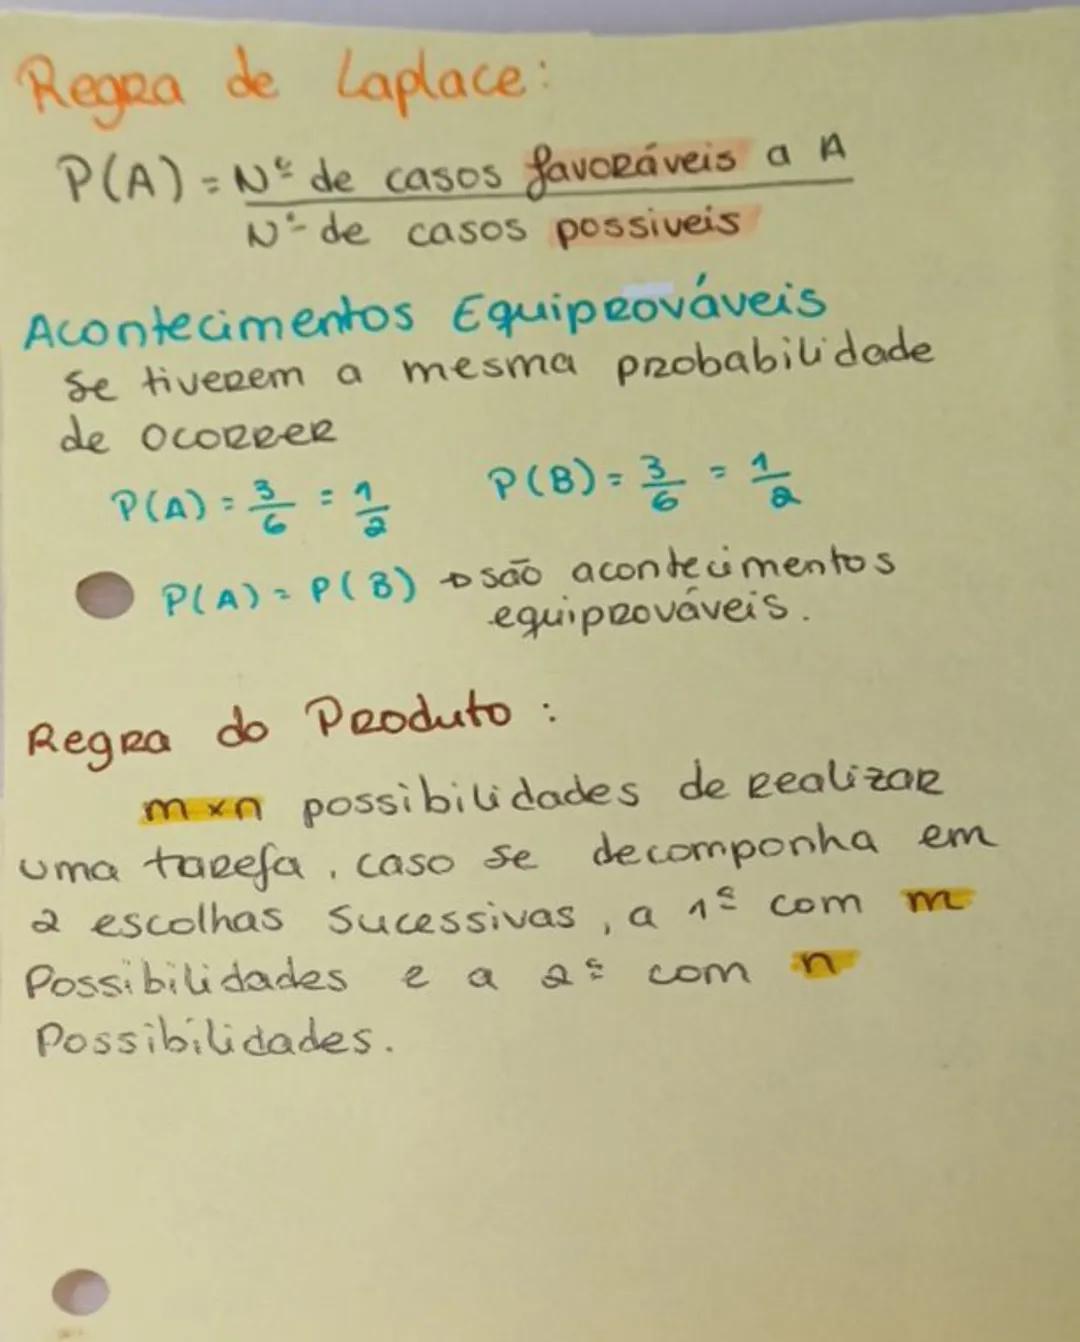 Regra de Laplace:
P(A) = Nº de casos favoráveis a A
Nº de casos possiveis
Acontecimentos Equiprováveis
Se tiverem a mesma probabilidade
de ocorrer
P(A) = 3/6 = 1/2 P(B) = 3/6 = 1/2
P(A) = P(B) → são acontecimentos
equiprováveis.
Regra do Produto :
m×n possibilidades de realizar
uma tarefa, caso se decomponha em
2 escolhas sucessivas, a 1ª com m
Possibilidades e a 2ª com n
Possibilidades.